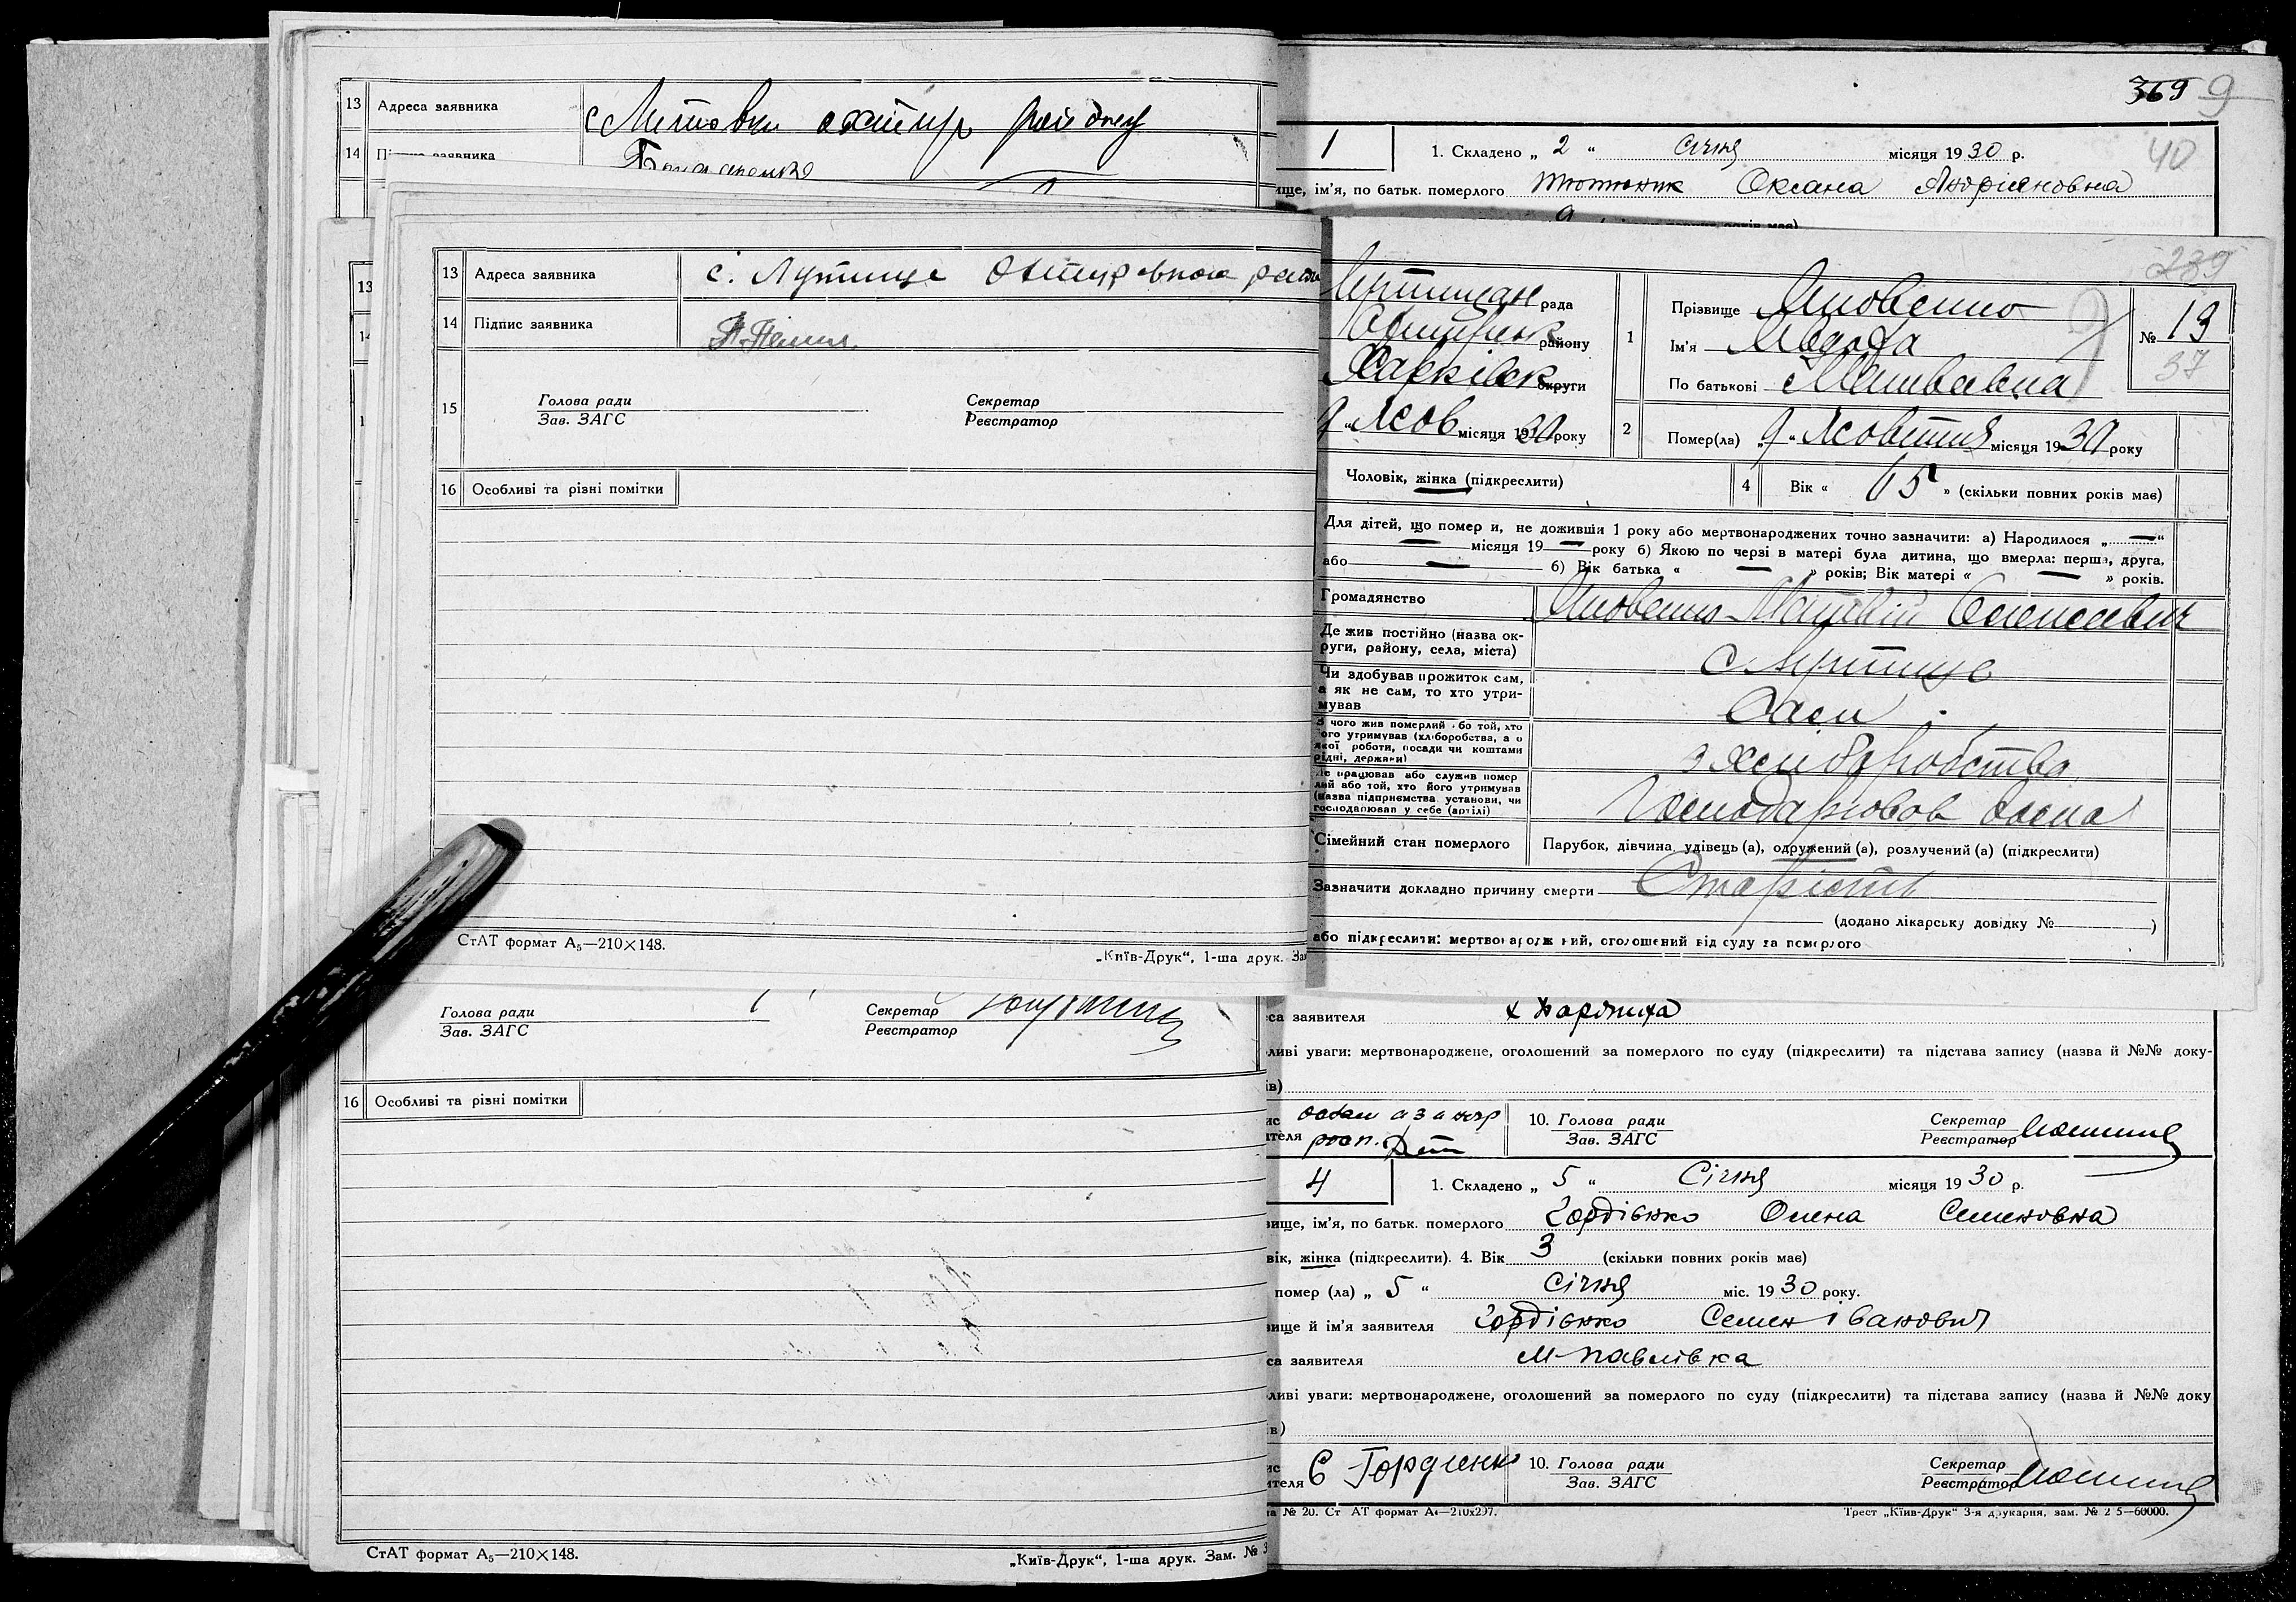 13 Адреса заявника с Литовки охтир району
14 заявника Бондаренко
13 Адреса заявника с. Лутище Охтирського
14 Підпис заявника
15 Голова ради Секретар
Зав. ЗАГС Реєстратор
16 Особливі та різні помітки
СтАТ формат А₅—210×148.
„Київ-Друк“, 1-ша друк. За
Голова ради Секретар
Зав. ЗАГС Реєстратор
16 Особливі та різні помітки
СтАТ формат А₅—210×148.
„Київ-Друк“, 1-ша друк. Зам. № 3
369 9
40
1 1. Складено „ 2 “ Січня місяця 1930 р.
ище, ім'я, по батьк. померлого Тютюник Оксана Андріяновна
239
рада
району
Харківськ округи
місяця 1930 року
1 Прізвище Яковенко
Ім'я
По батькові Матвієвна
№ 13
37
2 Помер(ла) „9“ Жовтня місяця 1930 року
Чоловік, жінка (підкреслити) 4 Вік « 65 » (скільки повних років має)
Для дітей, що помер и, не доживши 1 року або мертвонароджених точно зазначити: а) Народилося „ — “
— місяця 19 — року б) Якою по черзі в матері була дитина, що вмерла: перша, друга,
або — б) Вік батька « — » років; Вік матері « — » років.
Громадянство Яковенко Матвій Олексеевич
Де жив постійно (назва ок-
руги, району, села, міста) с Лутище
Чи здобував прожиток сам,
а як не сам, то хто утри-
мував Сам
З чого жив померлий або той, хто
його утримував (хліборобства, а о
якої роботи, посади чи коштами
рідні, держави) з хліборобства
Де працював або служив помер
лий або той, хто його утримував
(назва підприємства установи, чи
господарював у себе (артілі)
Сімейний стан померлого Парубок, дівчина, удівець (а), одружений (а), розлучений (а) (підкреслити)
Зазначити докладно причину смерти Старість
(додано лікарську довідку № )
або підкреслити: мертвонароджений, оголошений від суду за померлого
са заявителя
ливі уваги: мертвонароджене, оголошений за померлого по суду (підкреслити) та підстава запису (назва й №№ доку-
ів)
ис
ителя
10. Голова ради Секретар
Зав. ЗАГС Реєстратор
4 1. Складено „ 5 “ Січня місяця 1930 р.
вище, ім'я, по батьк. померлого Гордієнко Олена Семеновна
вік, жінка (підкреслити). 4. Вік 3 (скільки повних років має)
помер (ла) „ 5 “ Січня міс. 1930 року.
вище й ім'я заявителя Гордієнко Семен Іванович
са заявителя М-павлівка
ливі уваги: мертвонароджене, оголошений за померлого по суду (підкреслити) та підстава запису (назва й №№ доку
ів)
ис
ителя Є Гордиенко
10. Голова ради Секретар
Зав. ЗАГС Реєстратор
а № 20. Ст АТ формат А₄—210х297.
Трест „Київ-Друк“ 3-я друкарня, зам. № 2 5—60000.